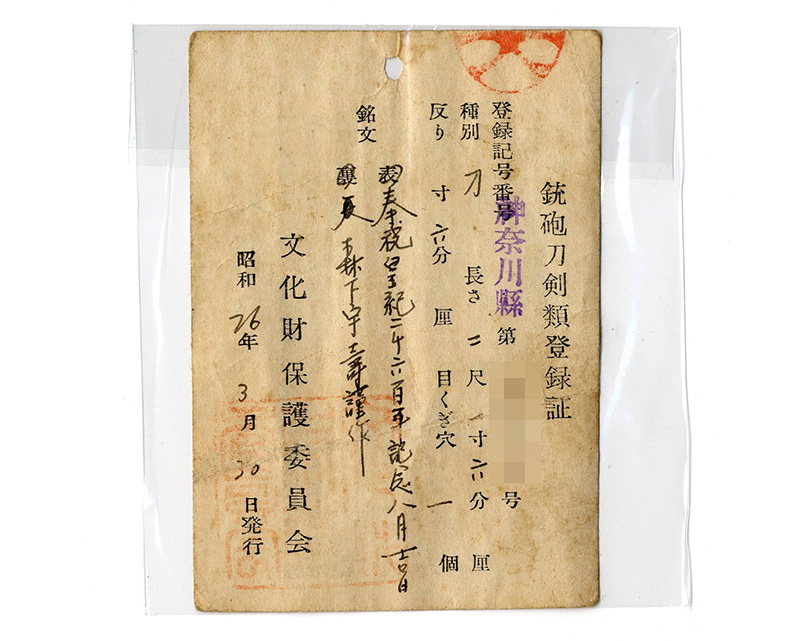 銃砲刀剣類登録証
登録記号番号 神奈川縣 第 号
種別 刀 長さ 二尺一寸六分 厘
反り 寸六分 厘 目くぎ穴 一 個
銘文
表 奉祝皇紀二千六百年記念八月吉日
裏 森下宇壽謹作
文化財保護委員会
昭和26年3月30日発行